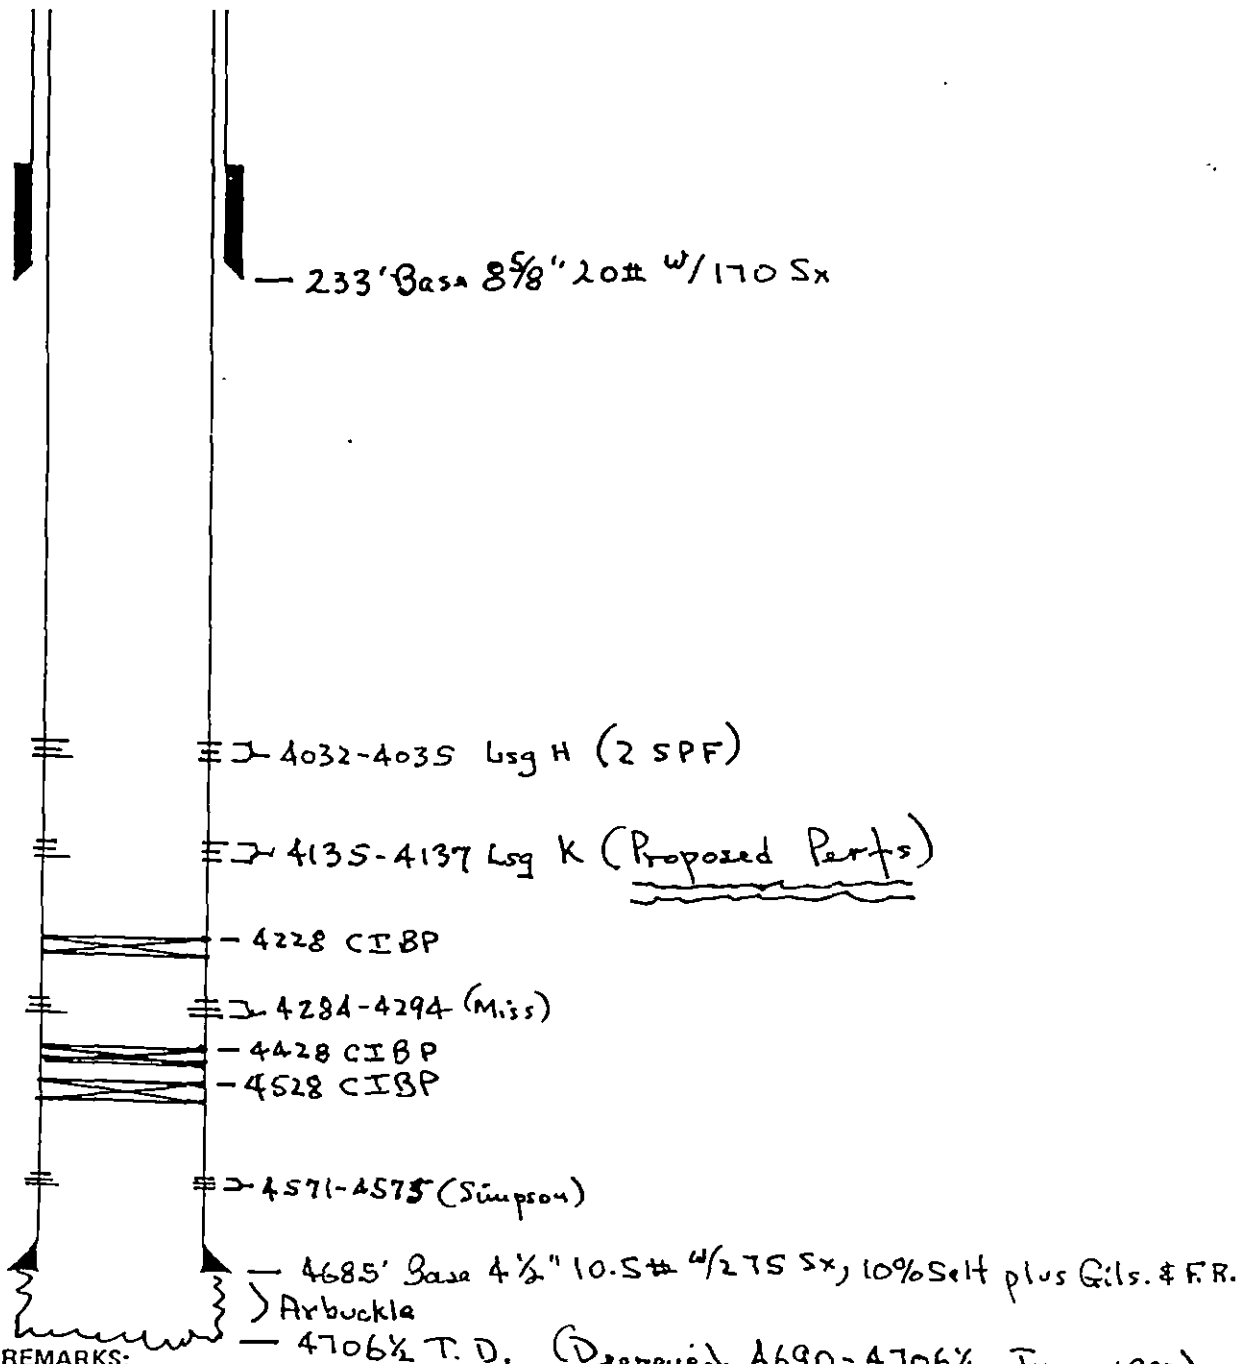 233' Base 8 5/8" 20# w/170 Sx
4032-4035 Lsg H (2 SPF)
4135-4137 Lsg K (Proposed Perfs)
4228 CIBP
4284-4294 (Miss)
4428 CIBP
4528 CIBP
4571-4575 (Simpson)
4685' Base 4 1/2" 10.5# w/275 Sx, 10% Salt plus Gils. & F.R.
Arbuckle
4706 1/2 T.D. 4690-4706 1/2
REMARKS: